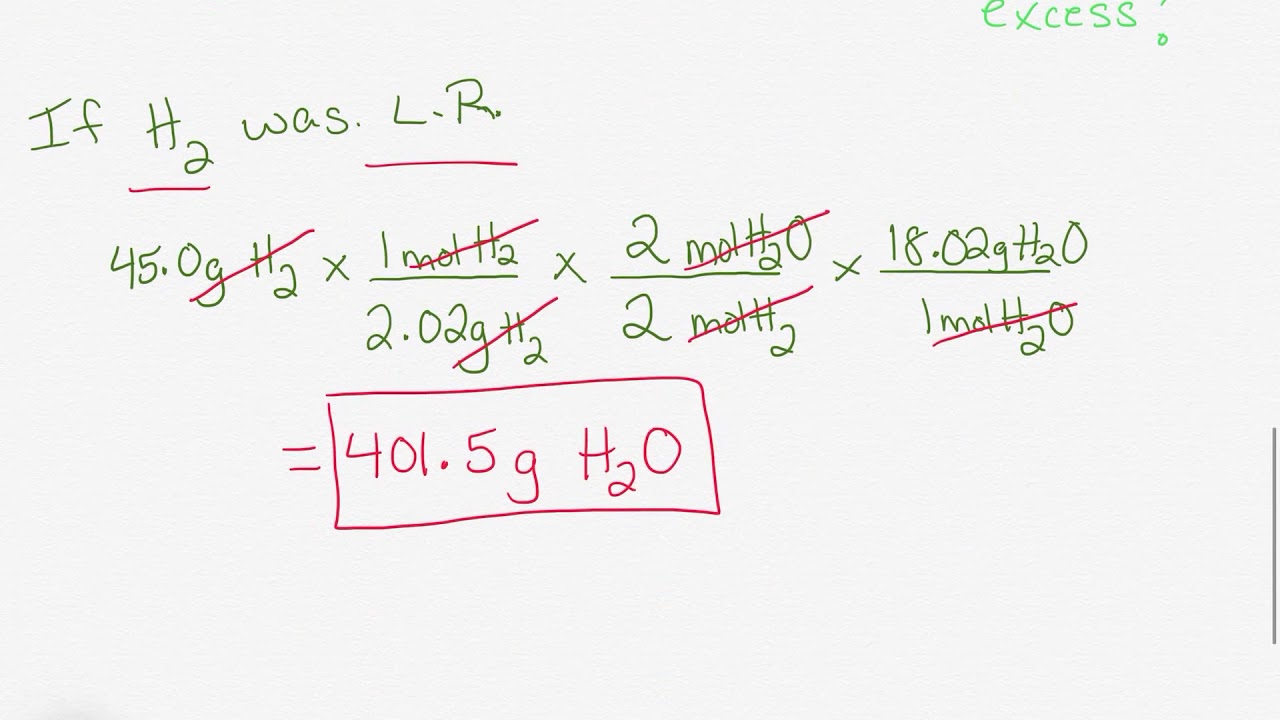 excess?
If H₂ was. L.R.
45.0g H₂ x 1 mol H₂ / 2.02g H₂ x 2 mol H₂O / 2 mol H₂ x 18.02g H₂O / 1 mol H₂O
= 401.5g H₂O